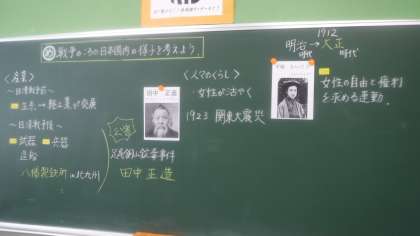 め 戦争のころの日本国内の様子を考えよう
1912
明治→大正
時代 時代
〈産業〉
〜日清戦争前〜
生糸→軽工業が発展
〜日露戦争後〜
武器 兵器
造船
八幡製鉄所 in 北九州
公害
足尾銅山鉱毒事件
田中正造
田中 正造
〈人々のくらし〉
・女性が活やく
1923 関東大震災
女性の自由と権利
を求める運動。